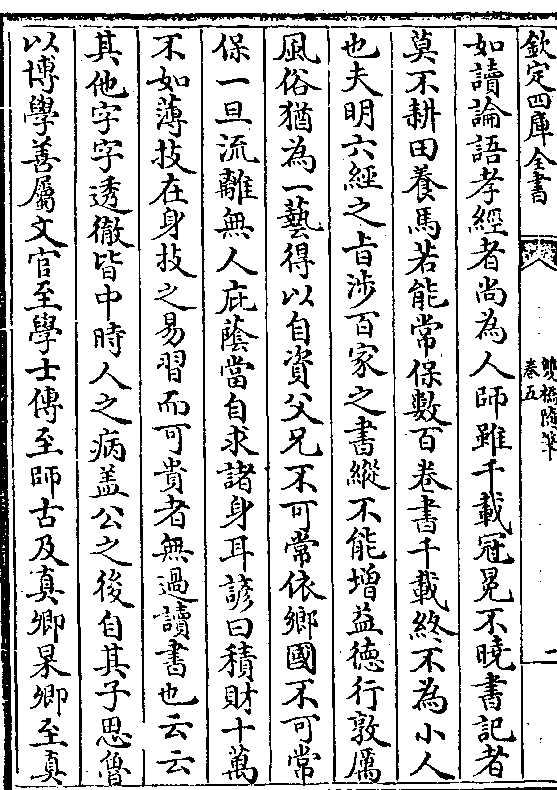 欽定四庫全書
雙橋隨筆
卷五
一
如讀論語孝經者尚為人師雖千載冠冕不曉書記者
莫不耕田養馬若能常保數百卷書千載終不為小人
也夫明六經之旨涉百家之書縱不能增益德行敦厲
風俗猶為一藝得以自資父兄不可常依鄉國不可常
保一旦流離無人庇蔭當自求諸身耳諺曰積財十萬
不如薄技在身技之易習而可貴者無過讀書也云云
其他字字透徹皆中時人之病盖公之後自其子思魯
以博學善屬文官至學士傳至師古及真卿杲卿至真